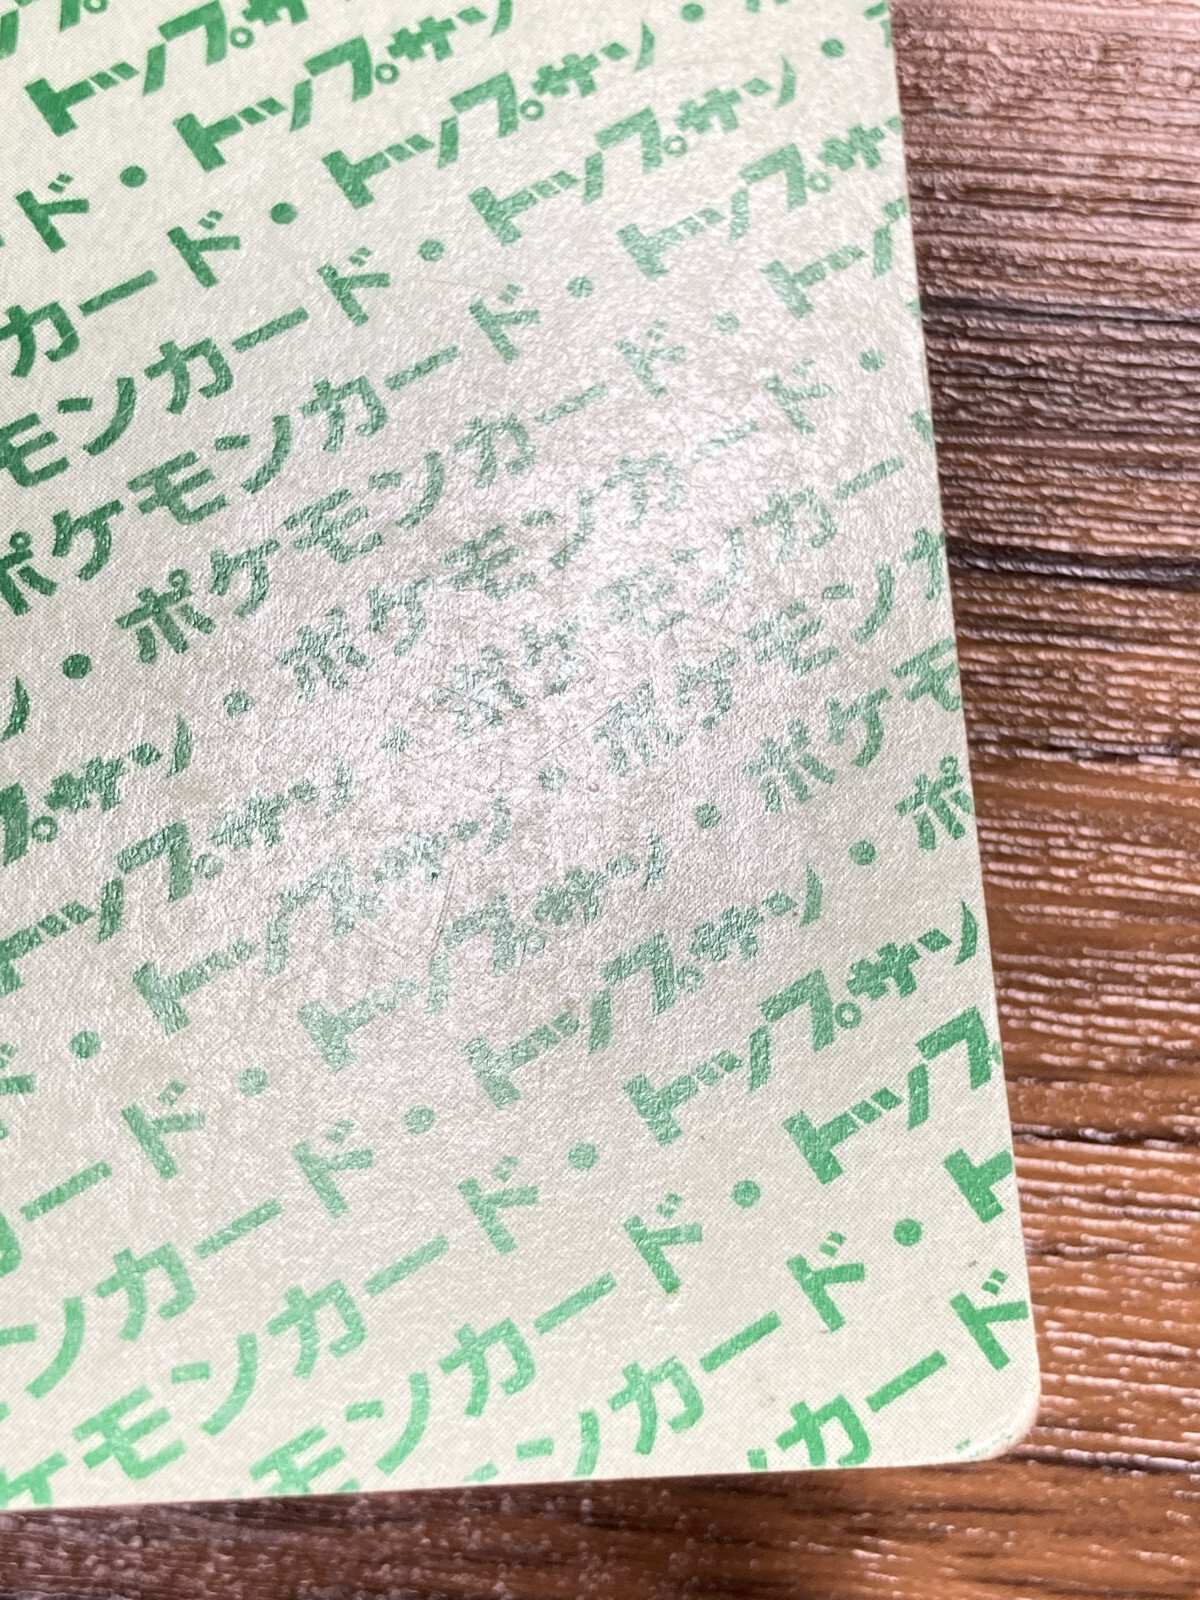 トップサ
ド・トップサン
カード・トップサン・
モンカード・トップサン・
ポケモンカード・トップサ
ン・ポケモンカード・トッ
プサン・ポケモンカード・
トップサン・ポケモンカー
ド・トップサン・ポケモン
カード・トップサン・ポケモ
ンカード・トップサン・ポ
ケモンカード・トップサン
モンカード・トップ
ンカード・ト
カード